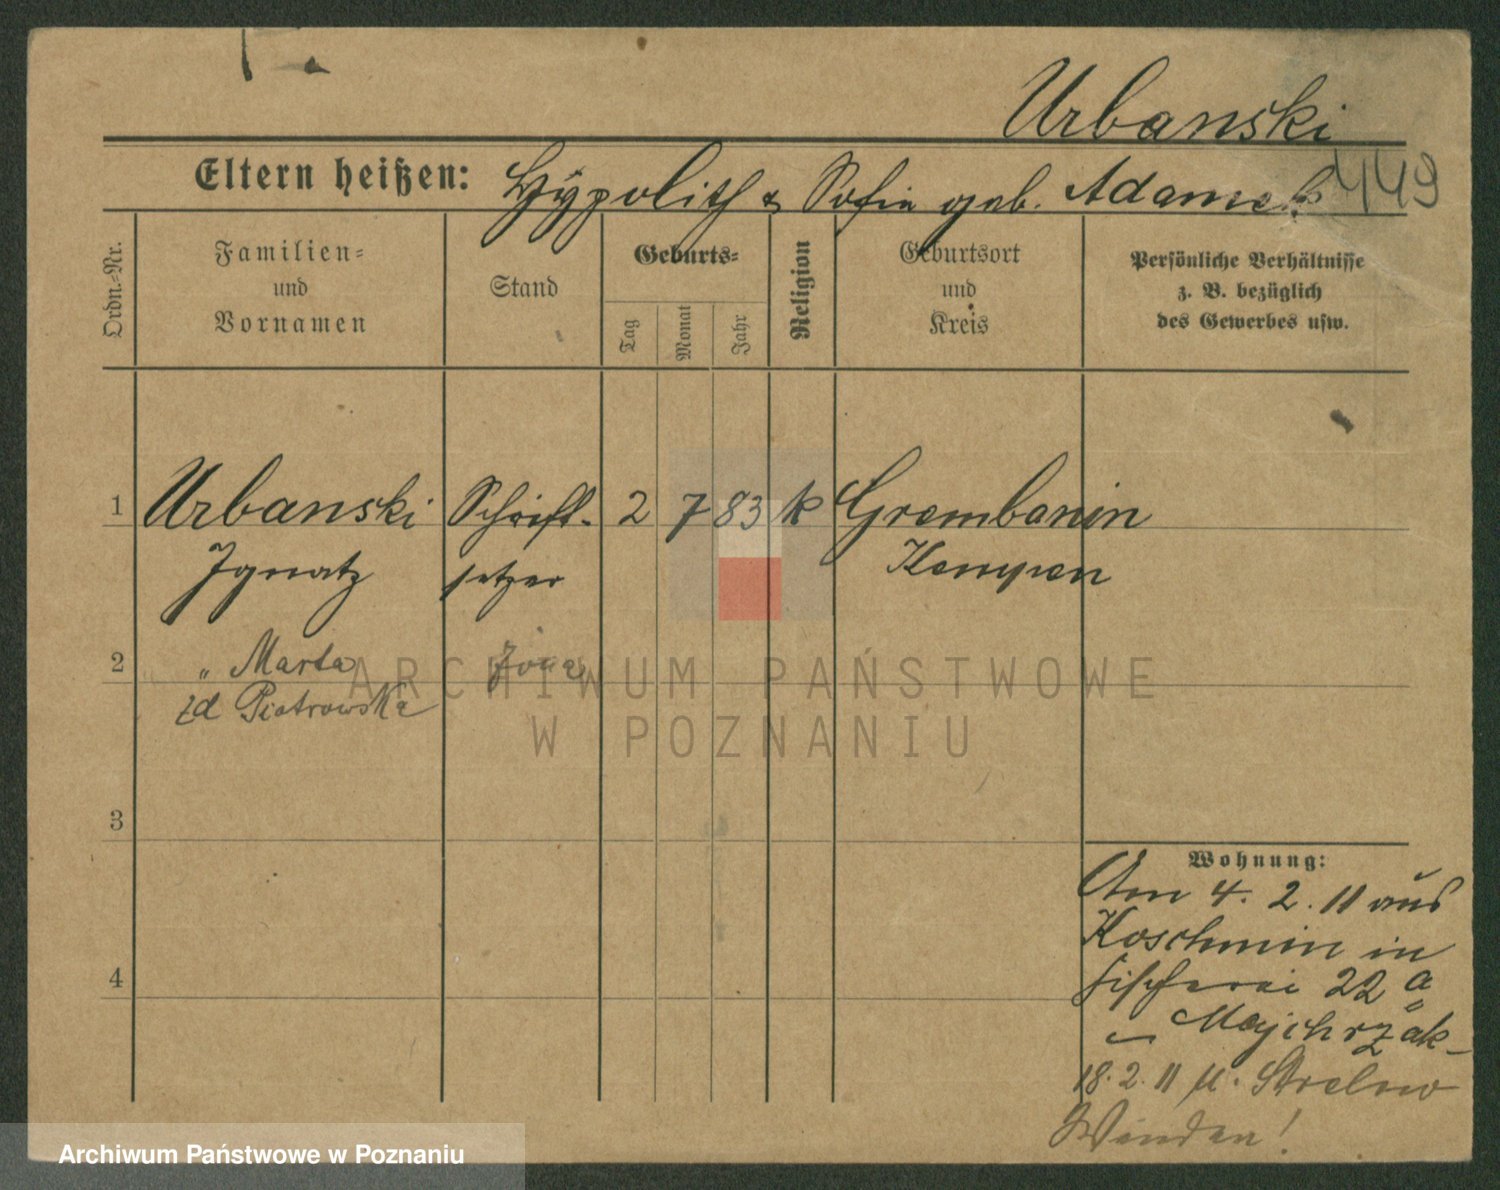 Urbanski
Eltern heißen: Hypolith & Sofie geb. Adamek 449
Ordn.-Nr.
Familien-
und
Vornamen
Stand
Geburts-
Tag
Monat
Jahr
Religion
Geburtsort
und
Kreis
Persönliche Verhältnisse
z. B. bezüglich
des Gewerbes usw.
1 Urbanski Schrift- 2 7 83 k Grembanin
Ignatz setzer Kempen
2 " Marta żona
zd Piotrowska
ARCHIWUM PAŃSTWOWE
W POZNANIU
3
Wohnung:
Am 4. 2. 11 aus
Koschmin in
Fischerei 22 a
Majchrzak
4
18. 2. 11 n. Strelno
Archiwum Państwowe w Poznaniu